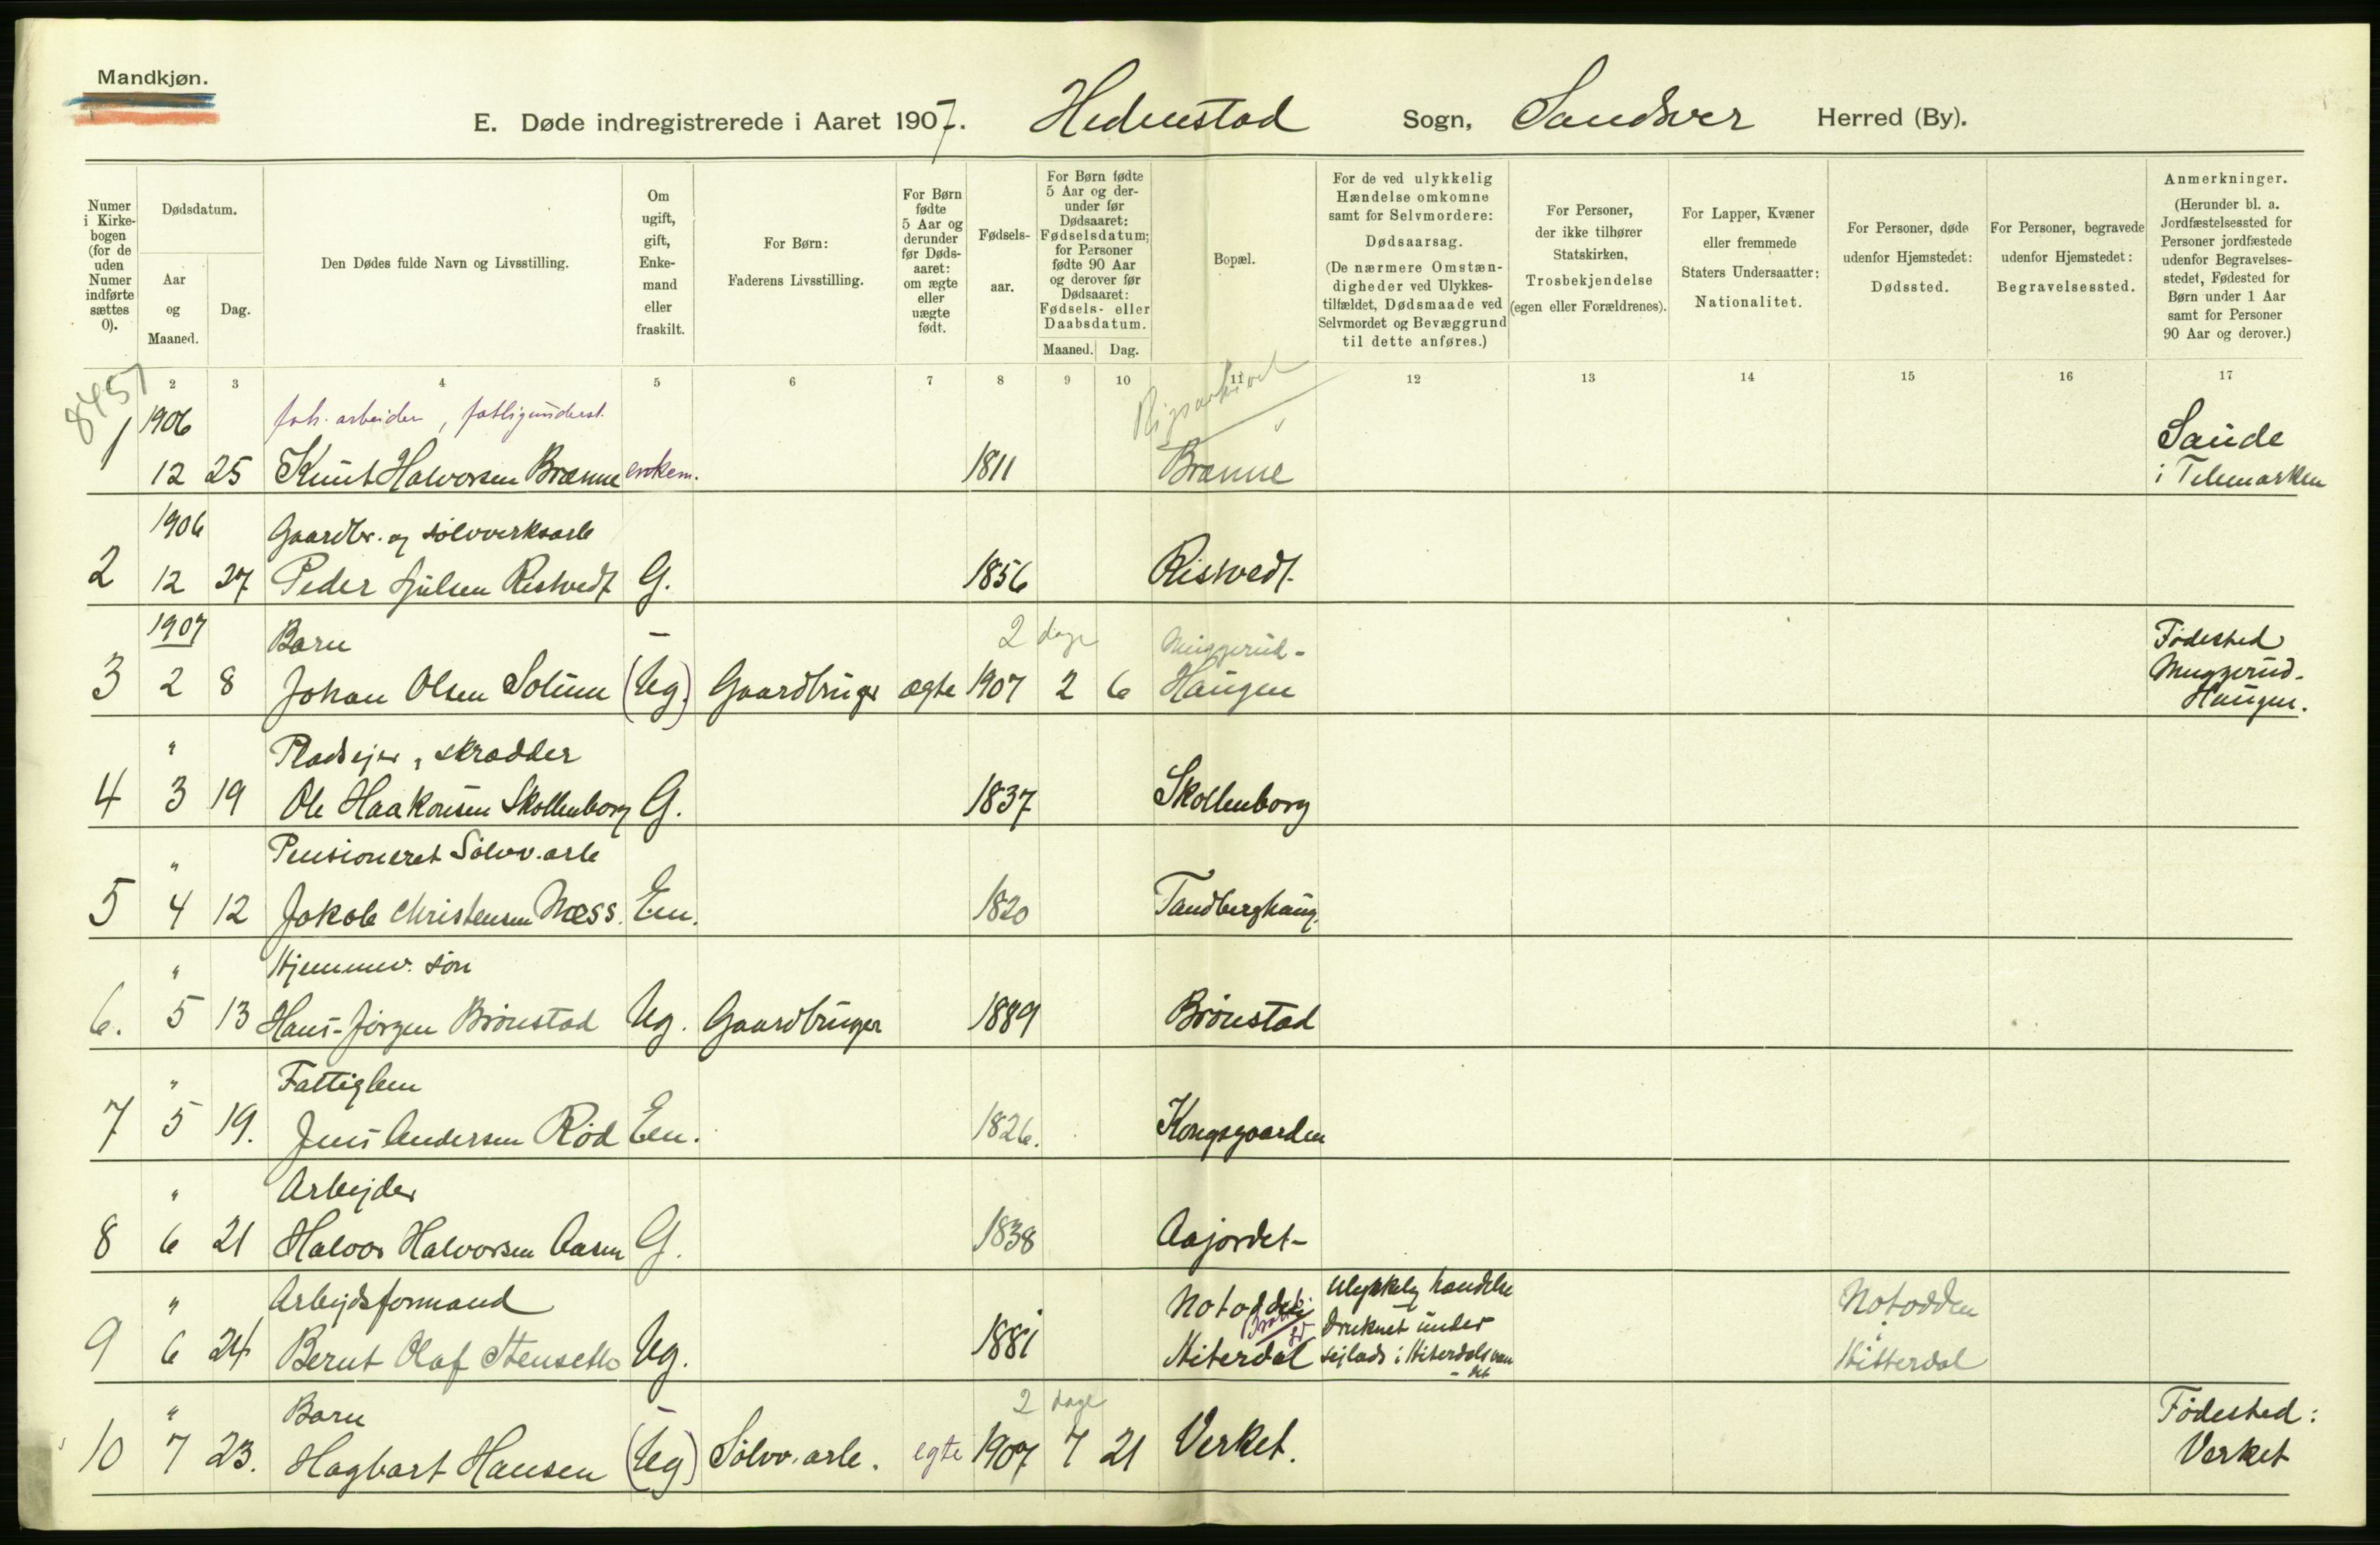 Mandkjøn.
E. Døde indregistrerede i Aaret 1907. Hedenstad Sogn, Sandsver Herred (By).
Numer i Kirkebogen (for de uden Numer indførte sættes 0).
Dødsdatum.
Aar og Maaned.
Dag.
Den Dødes fulde Navn og Livsstilling.
Om ugift, gift, Enkemand eller fraskilt.
For Børn: Faderens Livsstilling.
For Børn fødte 5 Aar og derunder før Dødsaaret: om ægte eller uægte født.
Fødselsaar.
For Børn fødte 5 Aar og derunder før Dødsaaret: Fødselsdatum; for Personer fødte 90 Aar og derover før Dødsaaret: Fødsels- eller Daabsdatum.
Maaned. Dag.
Bopæl.
For de ved ulykkelig Hændelse omkomne samt for Selvmordere: Dødsaarsag. (De nærmere Omstændigheder ved Ulykkestilfældet, Dødsmaade ved Selvmordet og Bevæggrund til dette anføres.)
For Personer, der ikke tilhører Statskirken, Trosbekjendelse (egen eller Forældrenes).
For Lapper, Kvæner eller fremmede Staters Undersaatter: Nationalitet.
For Personer, døde udenfor Hjemstedet: Dødssted.
For Personer, begravede udenfor Hjemstedet: Begravelsessted.
Anmerkninger. (Herunder bl. a. Jordfæstelsessted for Personer jordfæstede udenfor Begravelsesstedet, Fødested for Børn under 1 Aar samt for Personer 90 Aar og derover.)
8451
2 3 4 5 6 7 8 9 10 11 12 13 14 15 16 17
Rigsarkivet
1906 arbeider, fattigunderst. Saude
1 12 25 Knut Halvorsen Brænne enkem. 1811 Brænne i Telemarken
1906 Gaardbr. og sølvverksarb
2 12 27 Peder Hjulsen Ristvedt G. 1856 Ristvedt
1907 Barn — 2 dage Muggerud- Fødested
3 2 8 Johan Olsen Solum (Ug.) Gaardbruger ægte 1907 2 6 Haugen Muggerud-Haugen.
" Pladsejer, skrædder
4 3 19 Ole Haakonsen Skollenborg G. 1837 Skollenborg
" Pensioneret Sølvv.arb
5 4 12 Jakob Christensen Næss. Em. 1820 Tandberghaug.
" Hjemmev. søn
6. 5 13 Hans-Jørgen Brønstad Ug. Gaardbruger 1889 Brønstad
" Fattiglem
7 5 19. Jens Andersen Rød Em. 1826. Kongsgaarden
" Arbejder
8 6 21 Halvor Halvorsen Aasen G. 1838 Aajordet-
" Arbejdsformand Notodden Ulykkelig hændelse Notodden
9 6 24 Bernt Olaf Stenseth Ug. 1881 Hiterdal druknet under sejlads i Hiterdalsvandet Hitterdal
" Barn — 2 dage Fødested:
10 7 23. Hagbart Hansen (Ug) Sølvv.arb. egte 1907 7 21 Verket. Verket